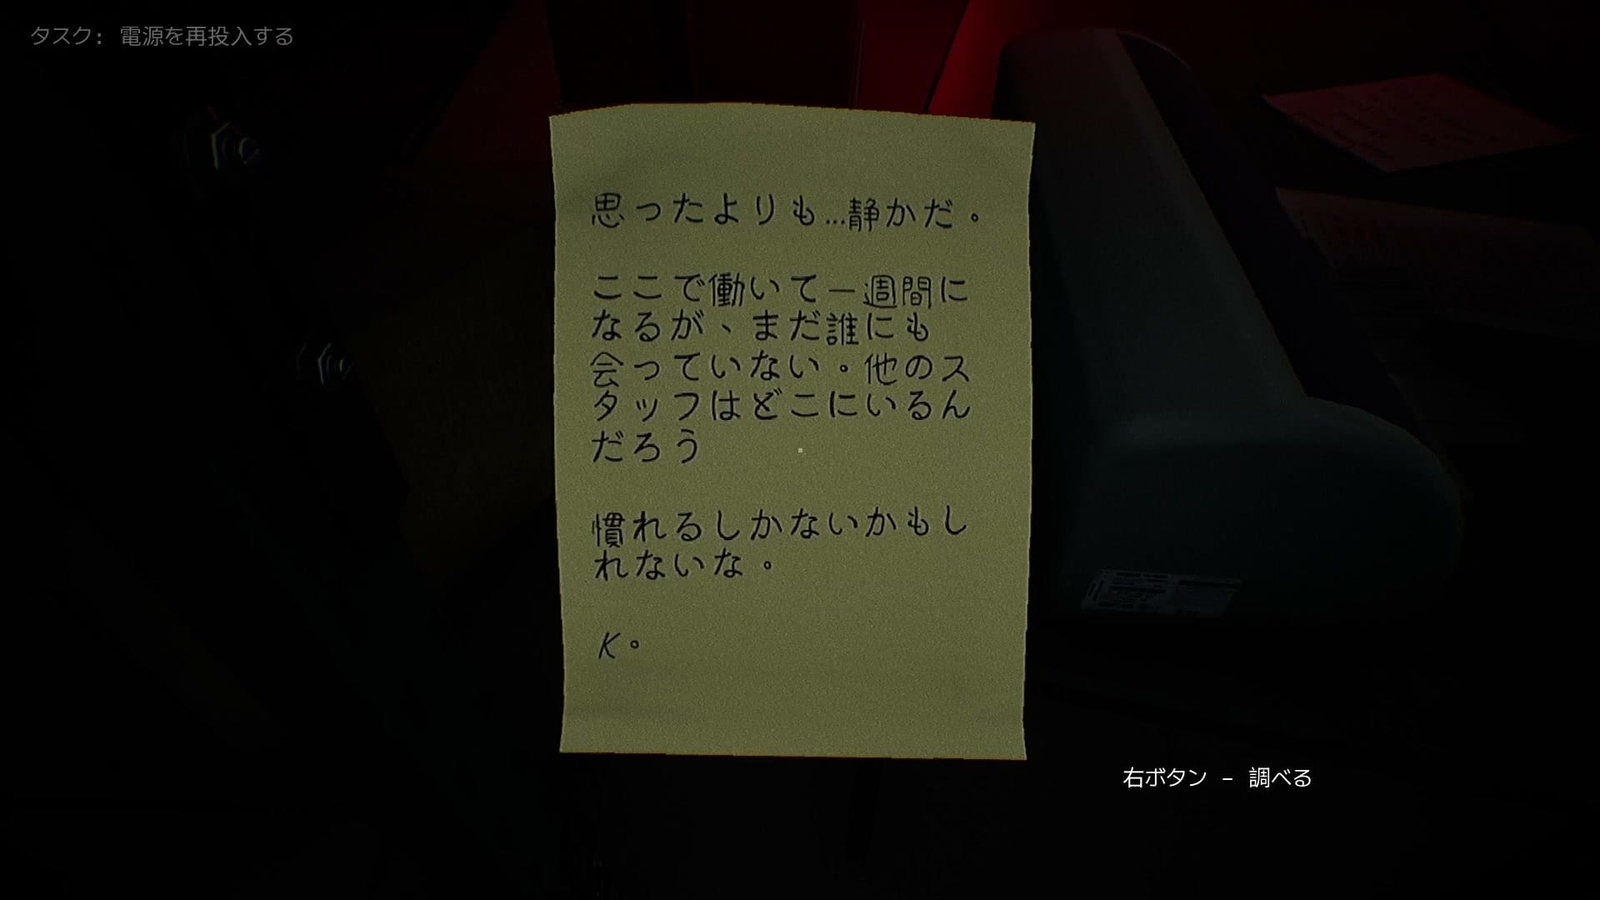 タスク: 電源を再投入する
思ったよりも...静かだ。
ここで働いて一週間に
なるが、まだ誰にも
会っていない。他のス
タッフはどこにいるん
だろう
慣れるしかないかもし
れないな。
K。
右ボタン - 調べる